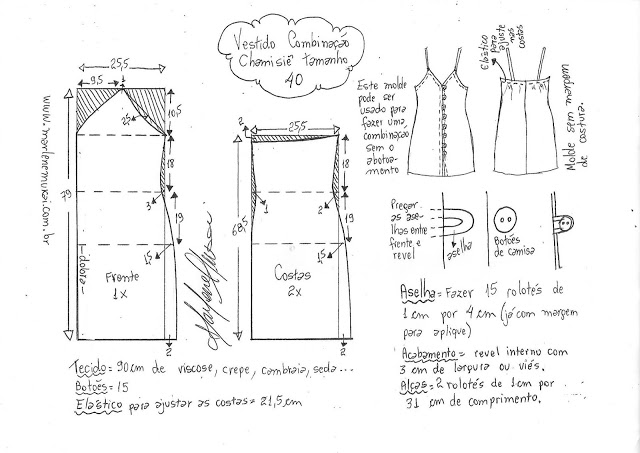 Vestido Combinação
Chamisiê Tamanho
40
25,5
9,5
1
10,5
25
18
3
19
1,5
79
dobra
Frente
1x
2
www.marlenemukai.com.br
2
25,5
18
1
2
19
1,5
68,5
Costas
2x
2
Este molde
pode ser
usado para
fazer uma
combinação
sem o
abotoa-
mento
Elástico
para
ajuste
nas
costas
Molde sem margem
de costura.
Pregar
as ase-
lhas entre
frente e
revel
aselha
Botões
de camisa
Aselha = Fazer 15 rolotés de
1 cm por 4 cm (já com margem
para aplique)
Acabamento = revel interno com
3 cm de largura ou viés.
Alças = 2 rolotés de 1 cm por
31 cm de comprimento.
Tecido = 90 cm de viscose, crepe, cambraia, seda...
Botões = 15
Elástico para ajustar as costas = 21,5 cm